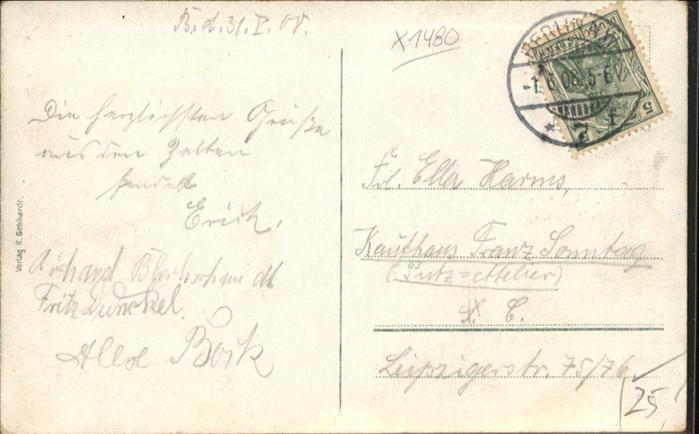 B. d. 31. V. 08.
X1480
BERLIN
-1.6.08.5-6N.
DEUTSCHES REICH
5
Die herzlichsten Grüße
aus den Zelten
sendet
Erich.
Richard
Fritz Dunckel.
Bork
Verlag K. Gebhardt.
Frl. Ella Harms,
Kaufhaus Franz Sonntag
(Putz=Atelier)
C.
Leipzigerstr. 75/76
25